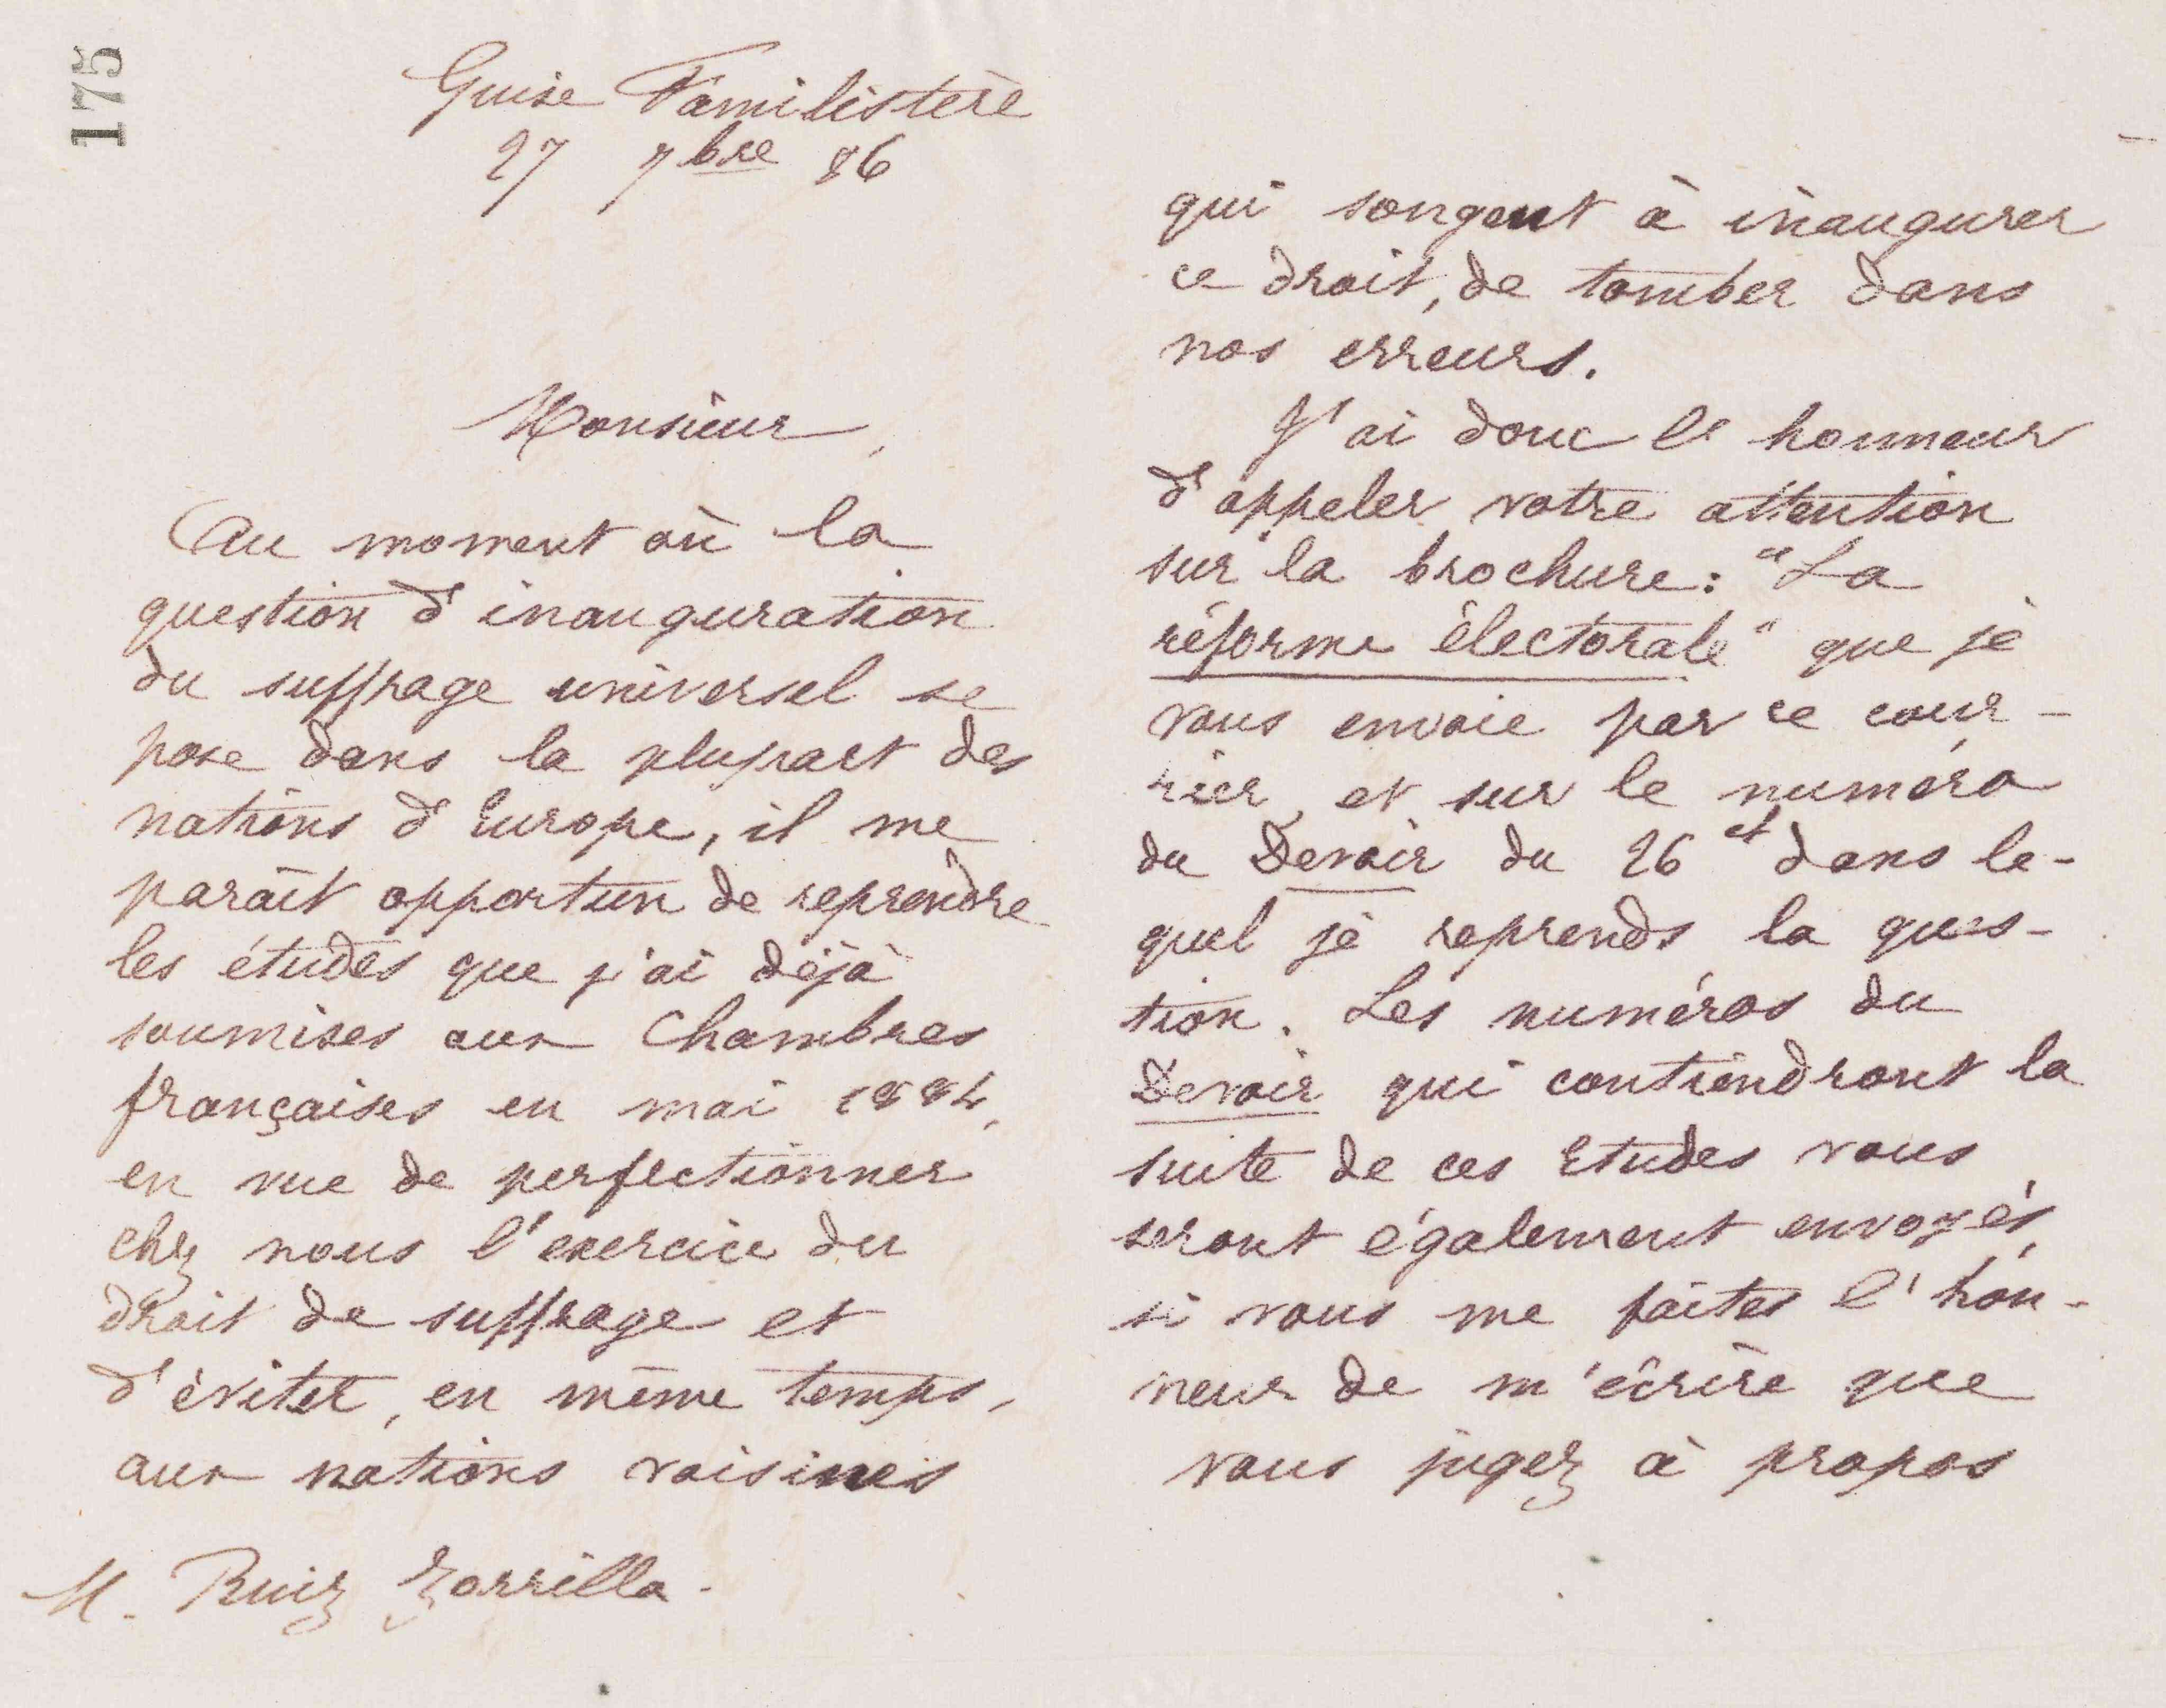 175
Guise Familistère
27 7bre 86
Monsieur,
Au moment où la
question d'inauguration
du suffrage universel se
pose dans la plupart des
nations d'Europe, il me
paraît opportun de reprendre
les études que j'ai déjà
soumises aux Chambres
françaises en mai 1884,
en vue de perfectionner
chez nous l'exercice du
droit de suffrage et
d'éviter, en même temps,
aux nations voisines
M. Ruiz Zorrilla.
qui songent à inaugurer
ce droit, de tomber dans
nos erreurs.
J'ai donc l'honneur
d'appeler votre attention
sur la brochure: "La
réforme électorale" que je
vous envoie par ce cour-
rier, et sur le numéro
du Devoir du 26 ct dans le-
quel je reprends la ques-
tion. Les numéros du
Devoir qui contiendront la
suite de ces études vous
seront également envoyés,
si vous me faites l'hon-
neur de m'écrire que
vous jugez à propos